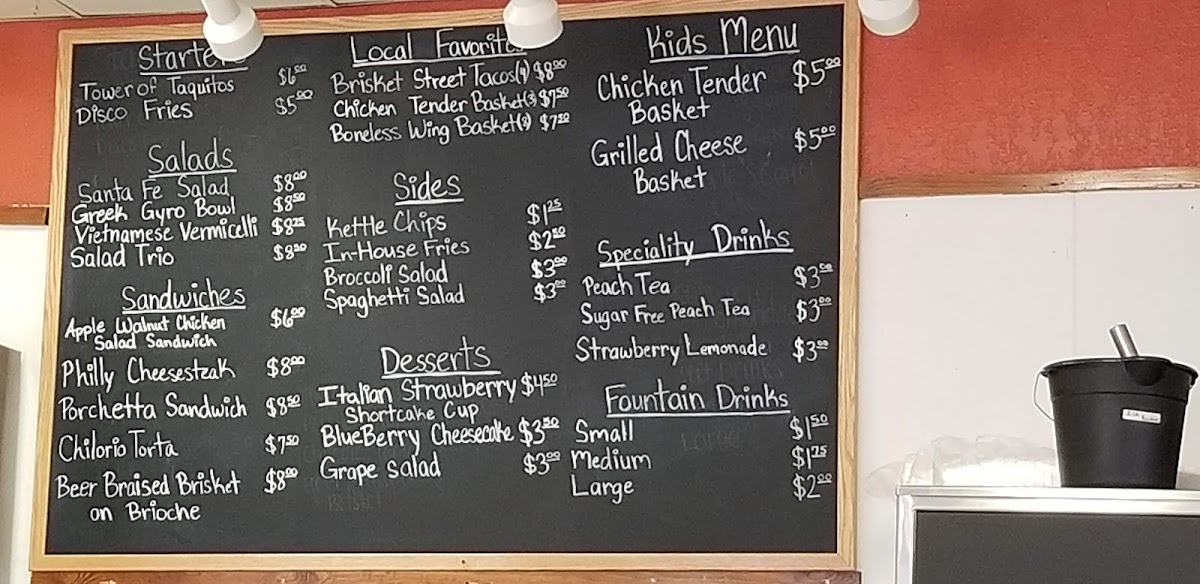 Starters
Tower of Taquitos $6.00
Disco Fries $5.00
Salads
Santa Fe Salad $8.00
Greek Gyro Bowl $8.50
Vietnamese Vermicelli $8.25
Salad Trio $8.50
Sandwiches
Apple Walnut Chicken $6.00
Salad Sandwich
Philly Cheesesteak $8.00
Porchetta Sandwich $8.50
Chilorio Torta $7.50
Beer Braised Brisket $8.00
on Brioche
Local Favorites
Brisket Street Tacos(4) $8.00
Chicken Tender Basket(3) $7.50
Boneless Wing Basket(8) $7.50
Sides
Kettle Chips $1.25
In-House Fries $2.50
Broccoli Salad $3.00
Spaghetti Salad $3.00
Desserts
Italian Strawberry $4.50
Shortcake Cup
BlueBerry Cheesecake $3.50
Grape salad $3.00
Kids Menu
Chicken Tender $5.00
Basket
Grilled Cheese $5.00
Basket
Speciality Drinks
Peach Tea $3.00
Sugar Free Peach Tea $3.00
Strawberry Lemonade $3.00
Fountain Drinks
Small $1.50
Medium $1.75
Large $2.00